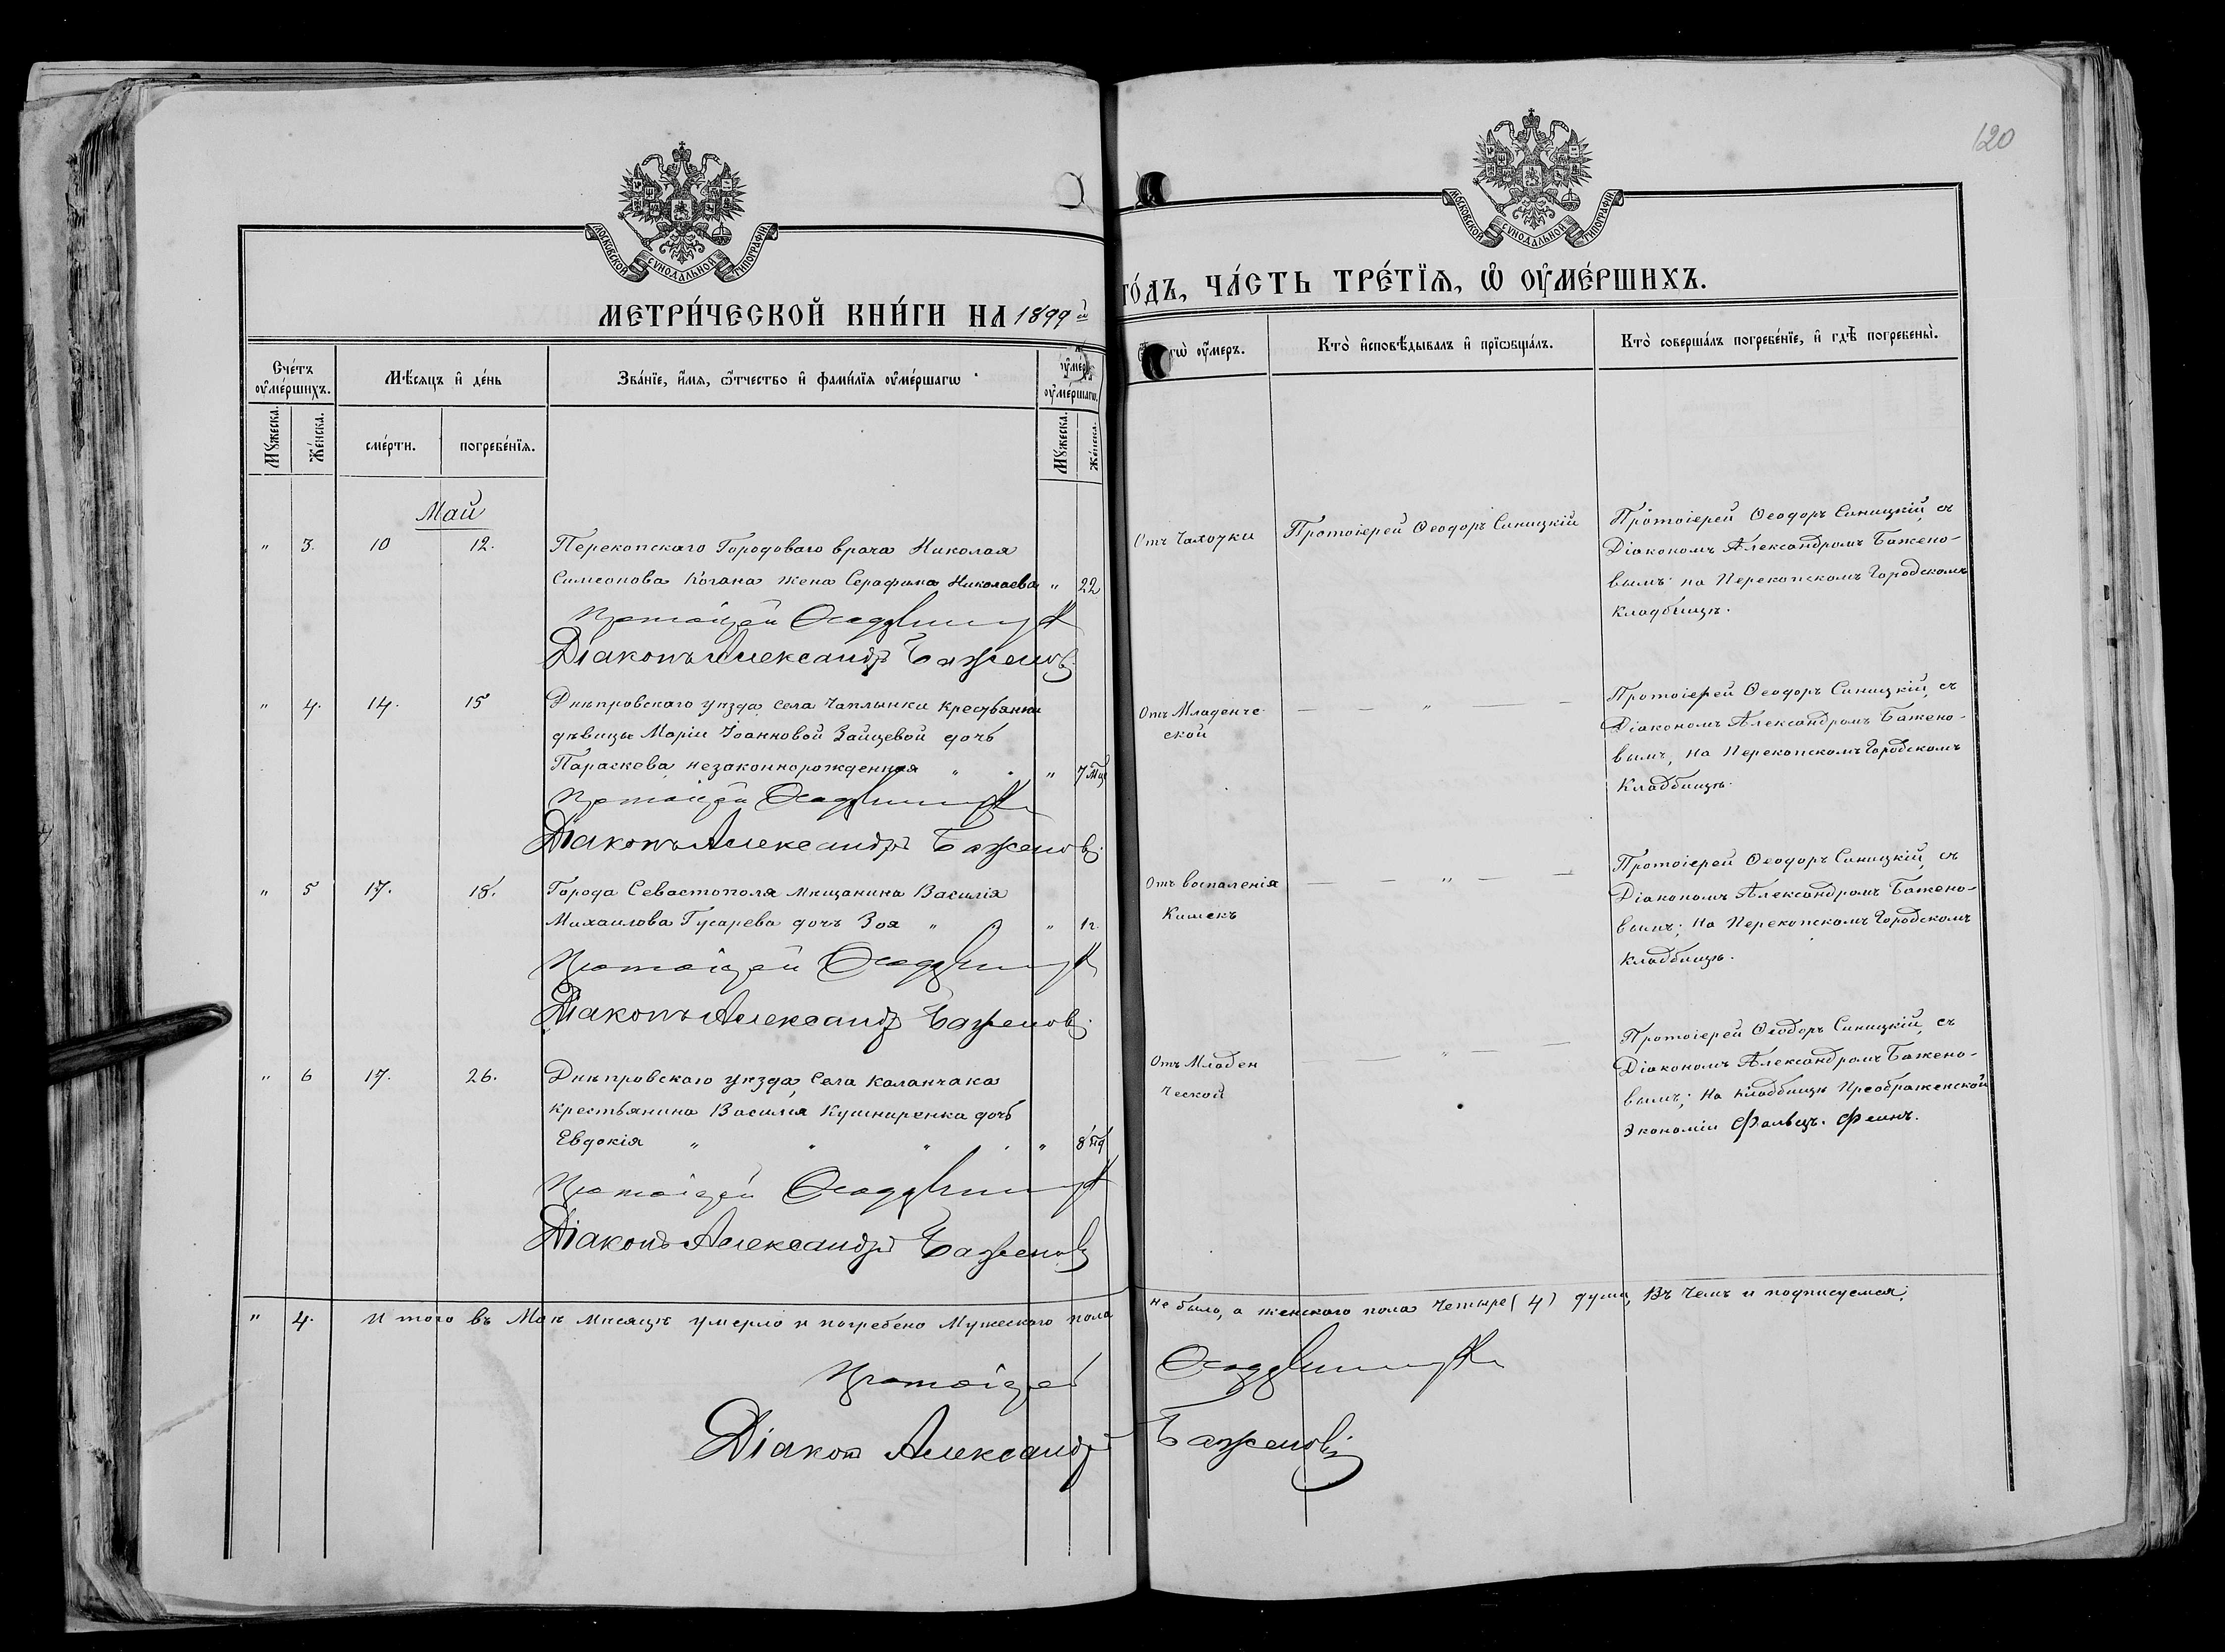 120
МОСКОВСКОЙ СѴНОДАЛЬНОЙ ТИПОГРАФІИ
МОСКОВСКОЙ СѴНОДАЛЬНОЙ ТИПОГРАФІИ
МЕТРИ́ЧЕСКОЙ КНИ́ГИ НА 1899й
ГО́ДЪ, ЧА́СТЬ ТРЕ́ТЇѦ, Ѡ҆ ОУ҆МЕ́РШИХЪ.
Сче́тъ оу҆ме́ршихъ.
Мꙋ́жеска.
Же́нска.
Мѣ́сѧцъ и҆ де́нь
сме́рти.
погребе́нїѧ.
Зва́нїе, и҆́мѧ, ѻ҆́тчество и҆ фами́лїѧ оу҆ме́ршагѡ
оу҆ме́ршагѡ.
Мꙋ́жеска.
Же́нска.
оу҆́меръ.
Кто̀ и҆сповѣ́дывалъ и҆ прїѡбща́лъ.
Кто̀ соверша́лъ погребе́нїе, и҆ гдѣ̀ погребены̀.
Май
" 3. 10 12. Перекопскаго Городоваго врача Николая
Симеонова Когана жена Серафима Николаева " 22
Протоіерей Ѳеодоръ Синицкій
Діаконъ Александръ Баженовъ
Отъ Чахотки
Протоіерей Ѳеодоръ Синицкій
Протоіерей Ѳеодоръ Синицкій, съ
Діакономъ Александромъ Бажено-
вымъ на Перекопскомъ Городскомъ
Кладбищѣ.
" 4. 14. 15 Днѣпровскаго уѣзда села Чаплынки крестьянки
дѣвицы Маріи Іоанновой Зайцевой дочь
Параскева, незаконнорожденная " " " 7 Мцъ
Протоіерей Ѳеодоръ Синицкій
Діаконъ Александръ Баженовъ.
Отъ Младенче-
ской
— — " — —
Протоіерей Ѳеодоръ Синицкій, съ
Діакономъ Александромъ Бажено-
вымъ, на Перекопскомъ Городскомъ
Кладбищѣ.
" 5 17. 18. Города Севастополя мѣщанина Василія
Михаилова Гусарева дочь Зоя " " " 1г.
Протоіерей Ѳеодоръ Синицкій
Діаконъ Александръ Баженовъ.
Отъ воспаленія
Кишекъ
— — " — —
Протоіерей Ѳеодоръ Синицкій, съ
Діакономъ Александромъ Бажено-
вымъ; на Перекопскомъ Городскомъ
Кладбищѣ.
" 6 17. 26. Днѣпровскаго уѣзда, Села Каланчака
крестьянина Василія Кушниренка дочь
Евдокія " " " " " 8
Протоіерей Ѳеодоръ Синицкій
Діаконъ Александръ Баженовъ
Отъ Младен
ческой
— — " — —
Протоіерей Ѳеодоръ Синицкій, съ
Діакономъ Александромъ Бажено-
вымъ; на кладбищѣ Преображенской
Экономіи Фальцъ. Феинъ.
" 4. Итого въ Маѣ мѣсяцѣ умерло и погребено Мужескаго пола не было, а женскаго пола четыре (4) души, Въ чемъ и подписуемся:
Протоіерей Ѳеодоръ Синицкій
Діаконъ Александръ Баженовъ